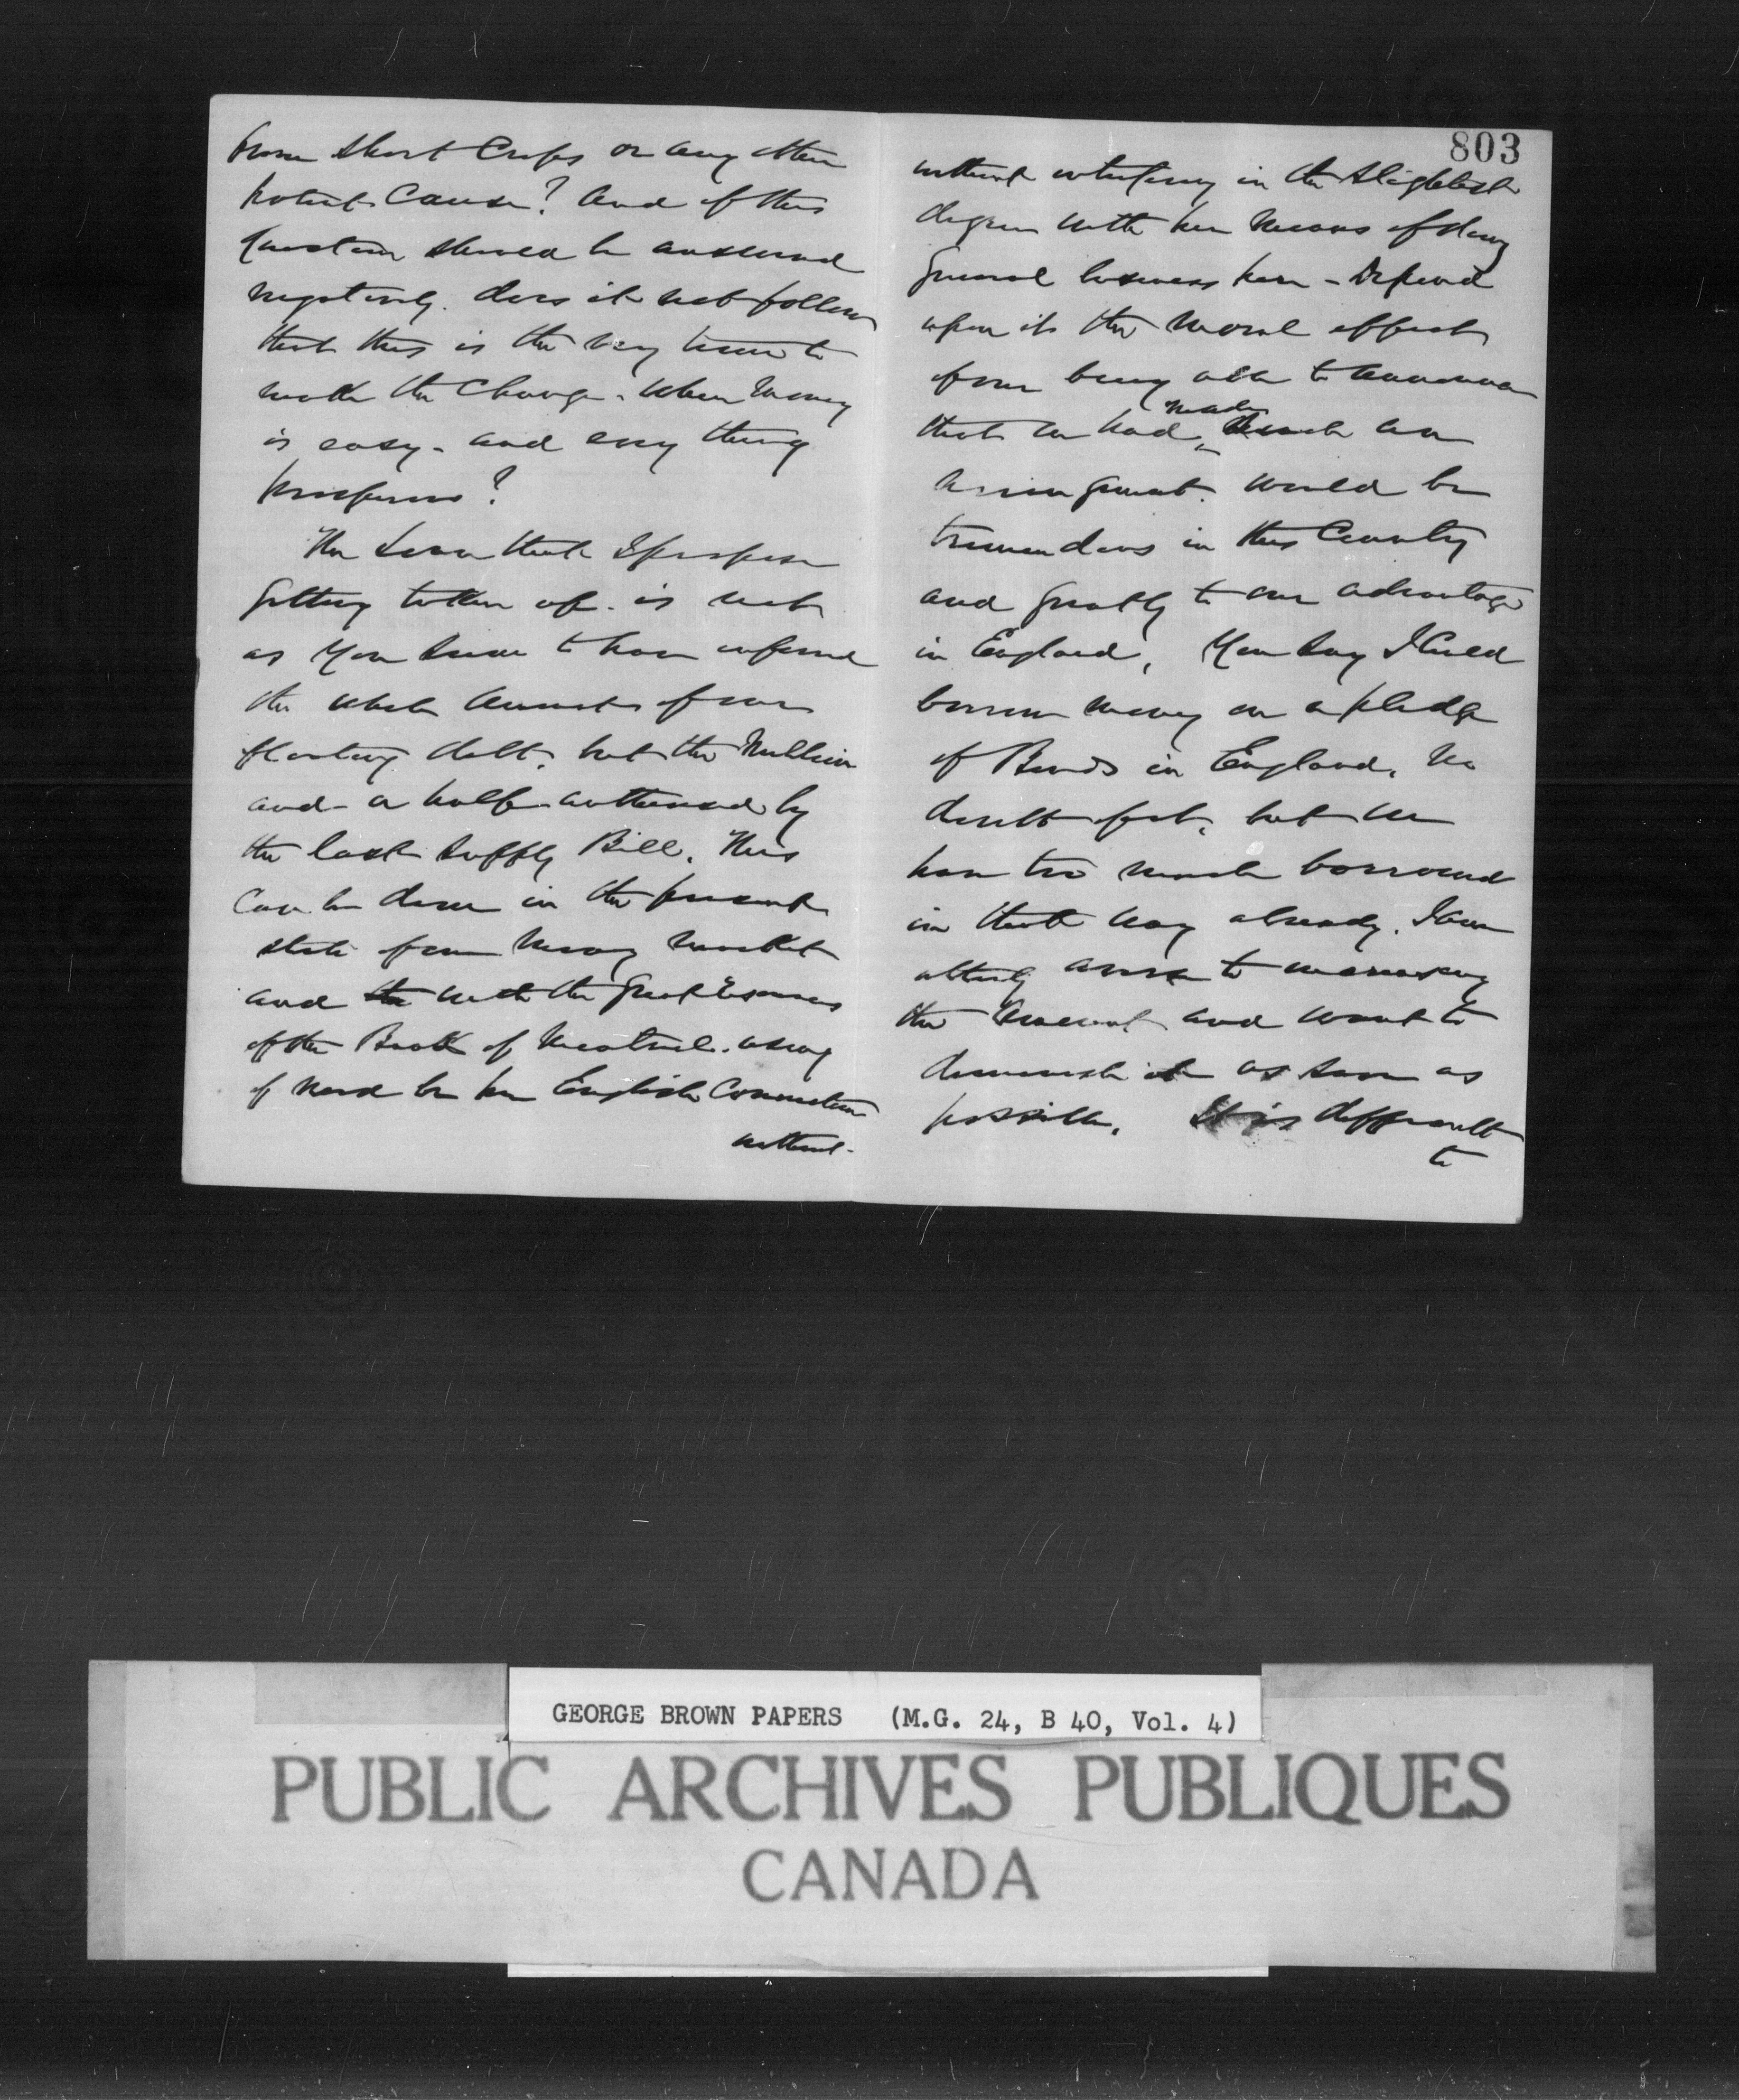 from short Crops or any other
potent Cause? And if this
question should be answered
negatively. does it not follow
that this is the very time to
make the Change. When Money
is easy - and every thing
prosperous?
The Loan that I propose
getting taken up. is not
as you seem to have inferred
the whole amount of our
floating debt, but the Million
and a half authorized by
the last Supply Bill. This
Can be done in the present
state of our Money Market
and the with the great resources
of the Bank of Montreal. using
if need be her English Connection
without
803
without interfering in the slightest
degree with her Means of doing
General business here - Depend
upon it the Moral effect
of our being able to announce
that we had made such an
arrangement. would be
tremendous in this Country
and greatly to our advantage
in England, You say I Could
borrow money on a pledge
of Bonds in England. No
doubt of it, but we
have too much borrowed
in that way already. I am
utterly averse to increasing
the Amount and want to
diminish it as soon as
possible. It is difficult
to
GEORGE BROWN PAPERS (M.G. 24, B 40, Vol. 4)
PUBLIC ARCHIVES PUBLIQUES
CANADA